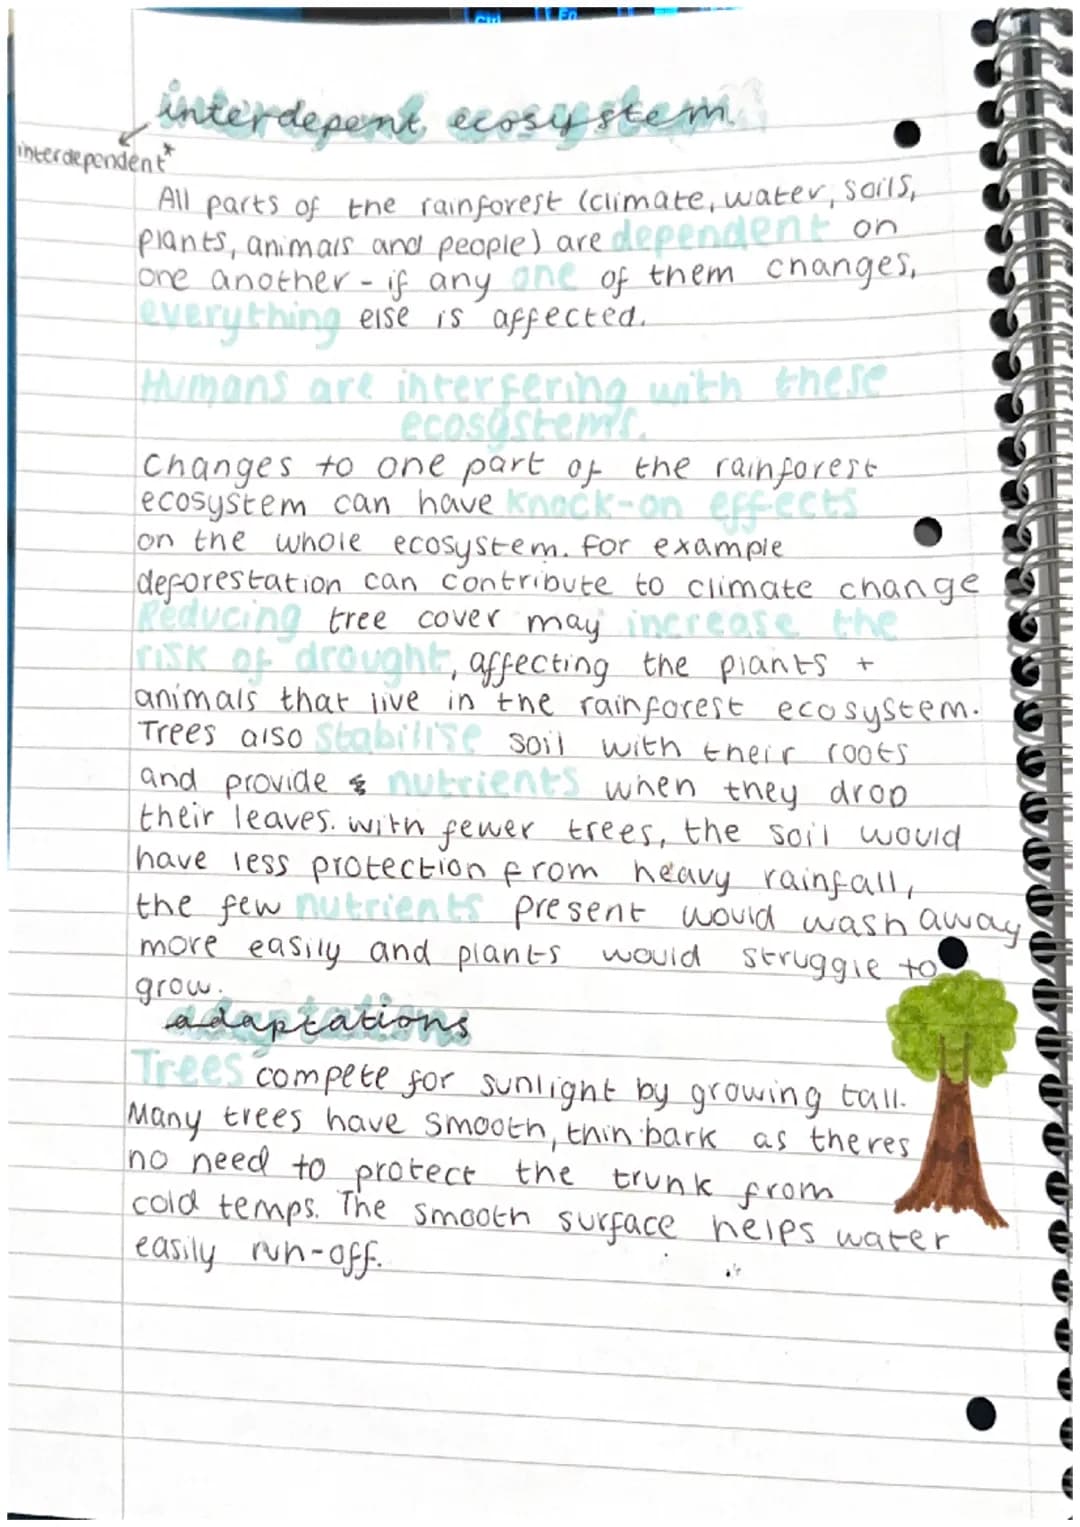 Ctrl
Fn
interdepent ecosystem
interdependent*
All parts of the rainforest (climate, water, soils,
plants, animals and people) are dependent on
one another - if any one of them changes,
everything else is affected.
Humans are interfering with these
ecosystems.
Changes to one part of the rainforest
ecosystem can have knock-on effects
on the whole ecosystem. For example
deforestation can contribute to climate change
Reducing tree cover may increase the
risk of drought, affecting the plants +
animals that live in the rainforest ecosystem.
Trees also stabilise soil with their roots
and provide nutrients when they drop
their leaves. With fewer trees, the soil would
have less protection from heavy rainfall,
the few nutrients present would wash away
more easily and plants would struggle to
grow.
adaptations
Trees compete for sunlight by growing tall.
Many trees have smooth, thin bark as theres
no need to protect the trunk from
cold temps. The smooth surface helps water
easily run-off.